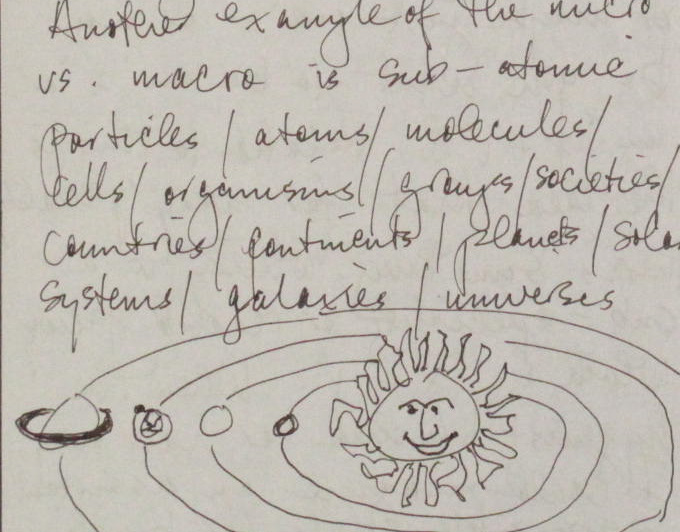 Another example of the micro
vs. macro is sub-atomic
particles / atoms / molecules /
cells / organisms / groups / societies /
countries / continents / planets / sola
systems / galaxies / universes